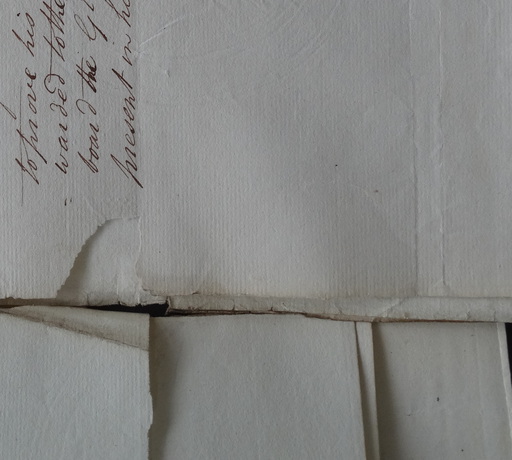 to prove his
-warded to the
board the G
present in h